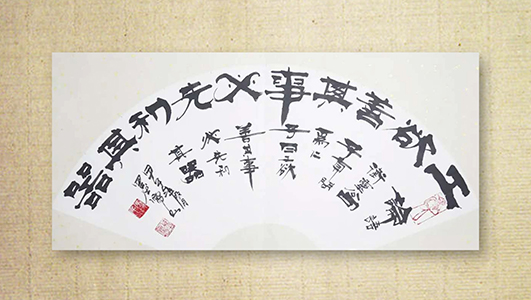 工欲善其事必先利其器
論語
衛靈公
子貢問
為仁
子曰工欲
善其事
必先利
其器